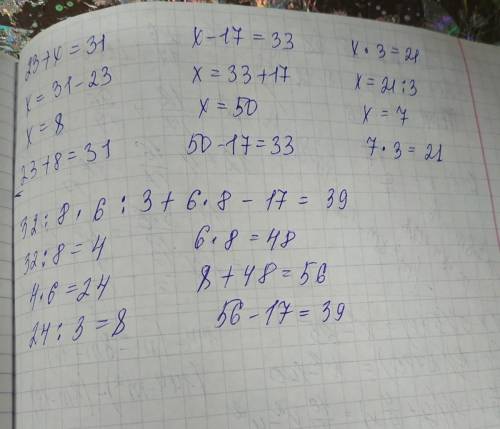 23+x=31
x=31-23
x=8
23+8=31
x-17=33
x=33+17
x=50
50-17=33
x·3=21
x=21:3
x=7
7·3=21
32:8·6:3+6·8-17=39
32:8=4
4·6=24
24:3=8
6·8=48
8+48=56
56-17=39